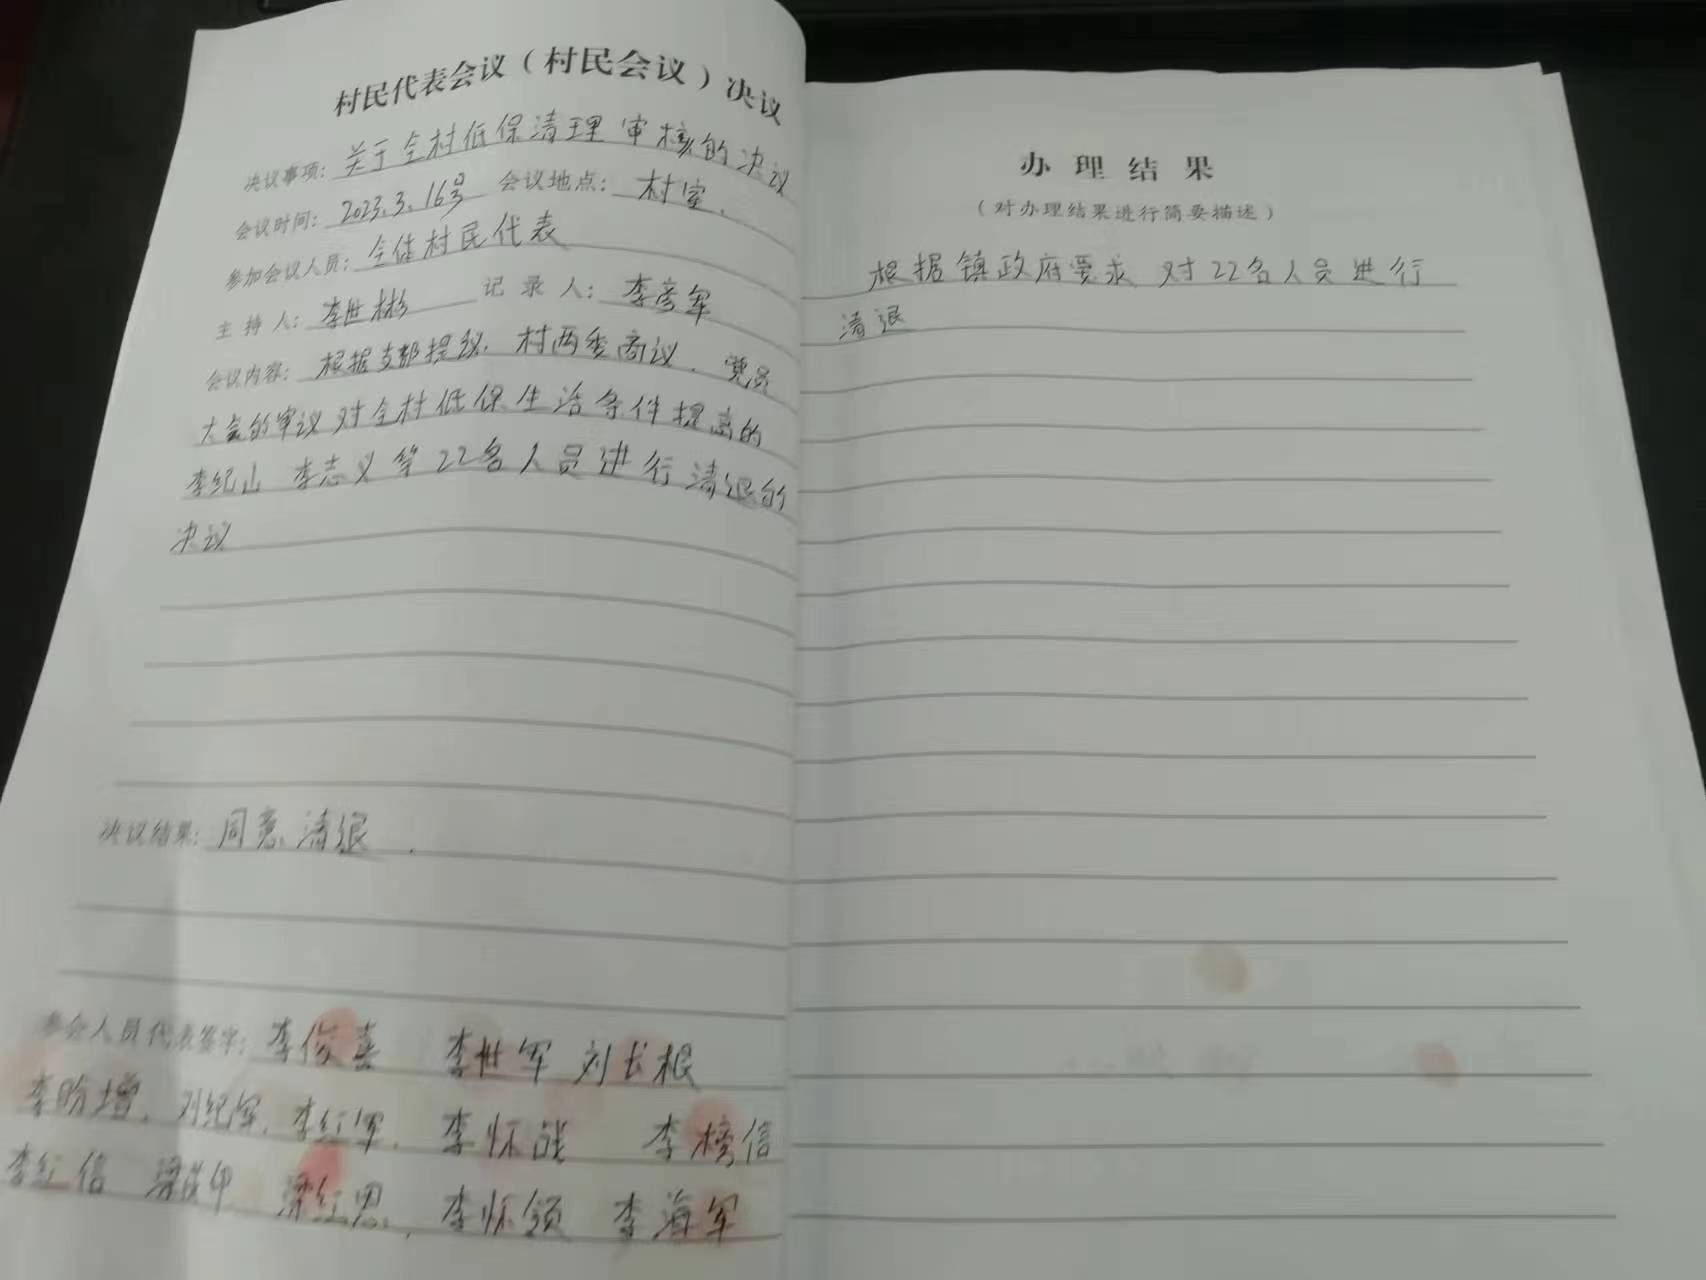 村民代表会议(村民会议)决议
决议事项:关于全村低保清理审核的决议
会议时间:2023.3.16号 会议地点:村室.
参加会议人员:全体村民代表
主持人:李世彬 记录人:李彦军
会议内容:根据支部提议.村两委商议.党员
大会的审议对全村低保生活条件提高的
李纪山 李志义等22名人员进行清退的
决议
决议结果:同意清退.
参会人员代表签字:李俊喜 李世军 刘长根
李盼增.刘纪军.李红军.李怀战 李榜信
李红信 梁红思.李怀领 李海军
办理结果
(对办理结果进行简要描述)
根据镇政府要求 对22名人员进行
清退